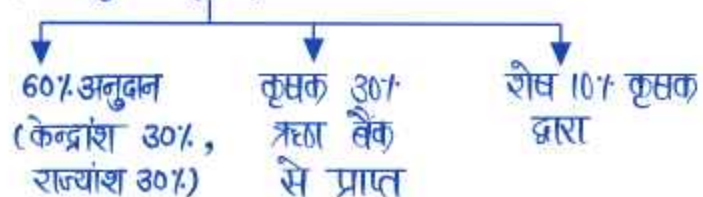 60% अनुदान
(केन्द्रांश 30%,
राज्यांश 30%)
कृषक 30%
ऋण बैंक
से प्राप्त
शेष 10% कृषक
द्वारा